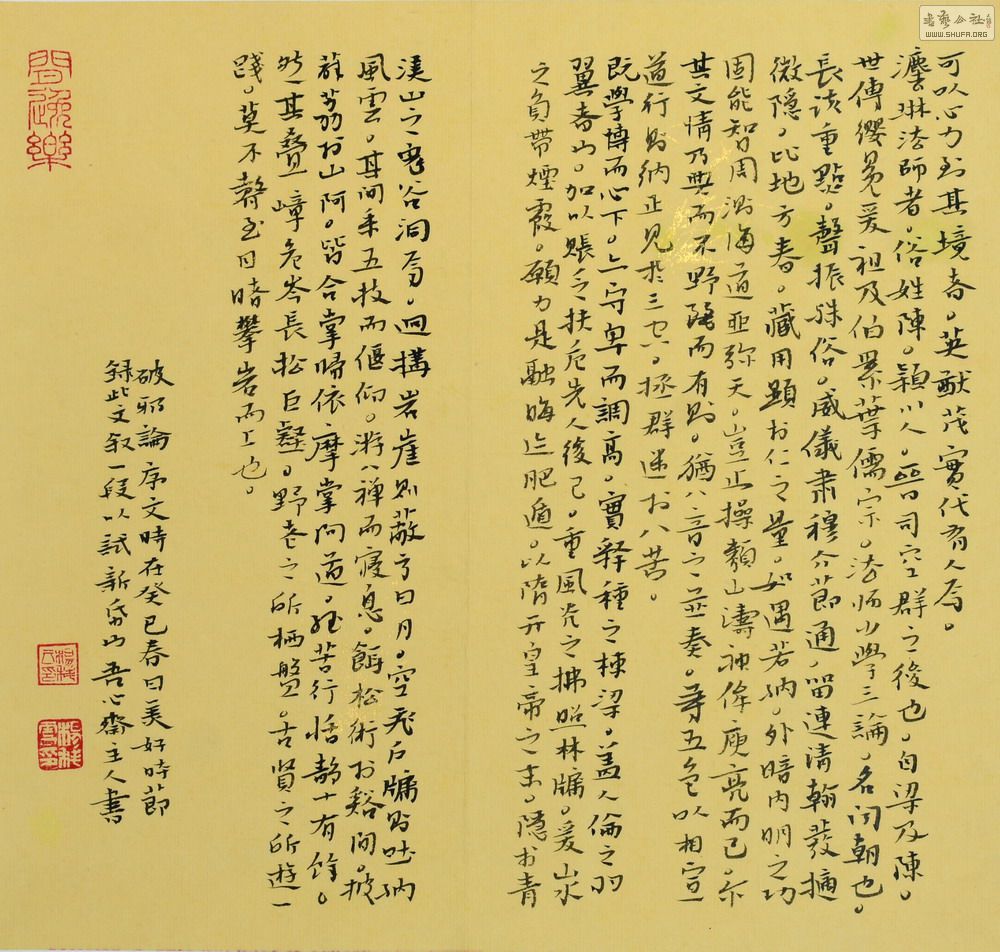 可以心力到其境者。英猷茂實代有人焉。
灋琳法師者。俗姓陳。潁川人。晉司空群之後也。自梁及陳。
世傳纓冕爰祖及伯累葉儒宗。法師少學三論。名聞朝也。
長該重點。聲振殊俗。威儀肅穆介節通。留連清翰發擿
微隱。比地方春。藏用顯於仁之量。如遇若納。外暗內明之功
固能智周測海道亞彌天。豈止操類山濤神侔庾亮而已。尔
其文情乃典而不野麗而有則。猶八音之並奏。等五色以相宣
道行則納正見於三空。拯群迷於八苦。
既學博而心下。亦守卑而調高。實釋種之棟梁。蓋人倫之羽
翼者也。加以賬乏扶危先人後己。重風光之拂照林牖。爰山水
之負帶煙霞。願力是融晦迹肥遁。以隋開皇帝之末。隱於青
溪山之鬼谷洞焉。迥構岩崖則蔽虧日月。空飛戶牖則吐納
風雲。其間采五技而偃仰。游八禪而寢息。餌松術於谿間。披
薜荔於山阿。皆合掌歸依摩掌問道。經苦行恬靜十有餘。
然其疊嶂危岑長松巨壑。野老之所栖盤。古賢之所遊一
踐。莫不罄至日晴攀岩而上也。
破邪論序文時在癸巳春日美好時節
錄此文叙一段以試新帋也吾心齋主人書
書藝公社
WWW.SHUFA.ORG